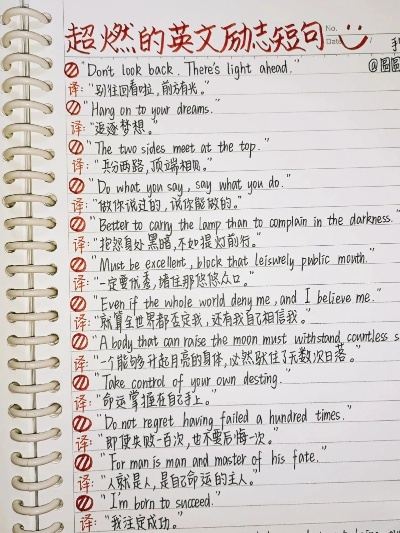 超燃的英文励志短句
No.
Date
@圖圖
"Don't look back. There's light ahead."
译:"别往回看啦,前方有光。"
"Hang on to your dreams."
译:"追逐梦想。"
"The two sides meet at the top."
译:"兵分两路,顶端相见。"
"Do what you say, say what you do."
译:"做你说过的,说你能做的。"
"Better to carry the lamp than to complain in the darkness."
译:"抱怨身处黑暗,不如提灯前行。"
"Must be excellent, block that leisurely public mouth."
译:"一定要优秀,堵住那悠悠众口。"
"Even if the whole world deny me, and I believe me."
译:"就算全世界都否定我,还有我自己相信我。"
"A body that can raise the moon must withstand countless s
译:"一个能够升起月亮的身体,必然驮住了无数次日落。"
"Take control of your own desting."
译:"命运掌握在自己手上。"
"Do not regret having failed a hundred times."
译:"即使失败一百次,也不要后悔一次。"
"For man is man and master of his fate."
译:"人就是人,是自己命运的主人。"
"I'm born to succeed."
译:"我注定成功。"